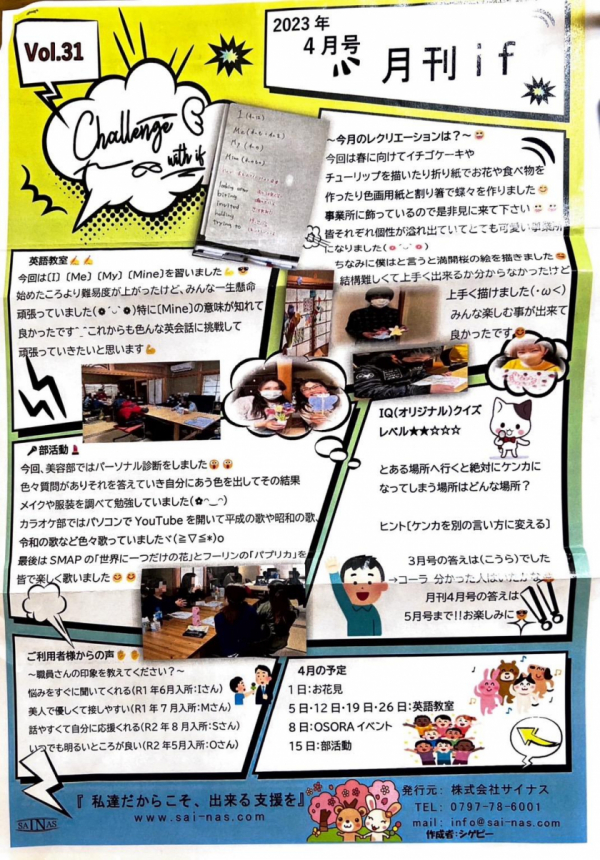 Vol.31
2023年
4月号
月刊if
Challenge
with if
～今月のレクリエーションは？～
今回は春に向けてイチゴケーキや
チューリップを描いたり折り紙でお花や食べ物を
作ったり色画用紙と割り箸で蝶々を作りました😊
事業所に飾っているので是非見に来て下さい
皆それぞれ個性が溢れ出ていてとても可愛い事業所
になりました
ちなみに僕はと言うと満開桜の絵を描きました
結構難しくて上手く出来るか分からなかったけど
上手く描けました(・ω<)
みんな楽しむ事が出来て
良かったです
英語教室
今回は[I] [Me] [My] [Mine]を習いました
始めたころより難易度が上がったけど、みんな一生懸命
頑張っていました(❁´◡`❁)特に[Mine]の意味が知れて
良かったです^_^これからも色んな英会話に挑戦して
頑張っていきたいと思います💪
🎤部活動💄
今回、美容部ではパーソナル診断をしました
色々質問がありそれを答えていき自分にあう色を出してその結果
メイクや服装を調べて勉強していました(✿◠‿◠)
カラオケ部ではパソコンでYouTubeを開いて平成の歌や昭和の歌、
令和の歌など色々歌っていましたヾ(≧▽≦*)o
最後はSMAPの「世界に一つだけの花」とフーリンの「パプリカ」を
皆で楽しく歌いました
IQ(オリジナル)クイズ
レベル★★☆☆☆
とある場所へ行くと絶対にケンカに
なってしまう場所はどんな場所？
ヒント[ケンカを別の言い方に変える]
3月号の答えは(こうら)でした
→コーラ 分かった人はいたかな
月刊4月号の答えは
5月号まで!!お楽しみに
ご利用者様からの声
～職員さんの印象を教えてください？～
悩みをすぐに聞いてくれる(R1年6月入所:Iさん)
美人で優しくて接しやすい(R1年7月入所:Mさん)
話やすくて自分に応援くれる(R2年8月入所:Sさん)
いつでも明るいところが良い(R2年5月入所:Oさん)
4月の予定
1日:お花見
5日・12日・19日・26日:英語教室
8日:OSORAイベント
15日:部活動
SAINAS
『私達だからこそ、出来る支援を』
www.sai-nas.com
発行元: 株式会社サイナス
TEL: 0797-78-6001
mail: info@sai-nas.com
作成者:シゲピー